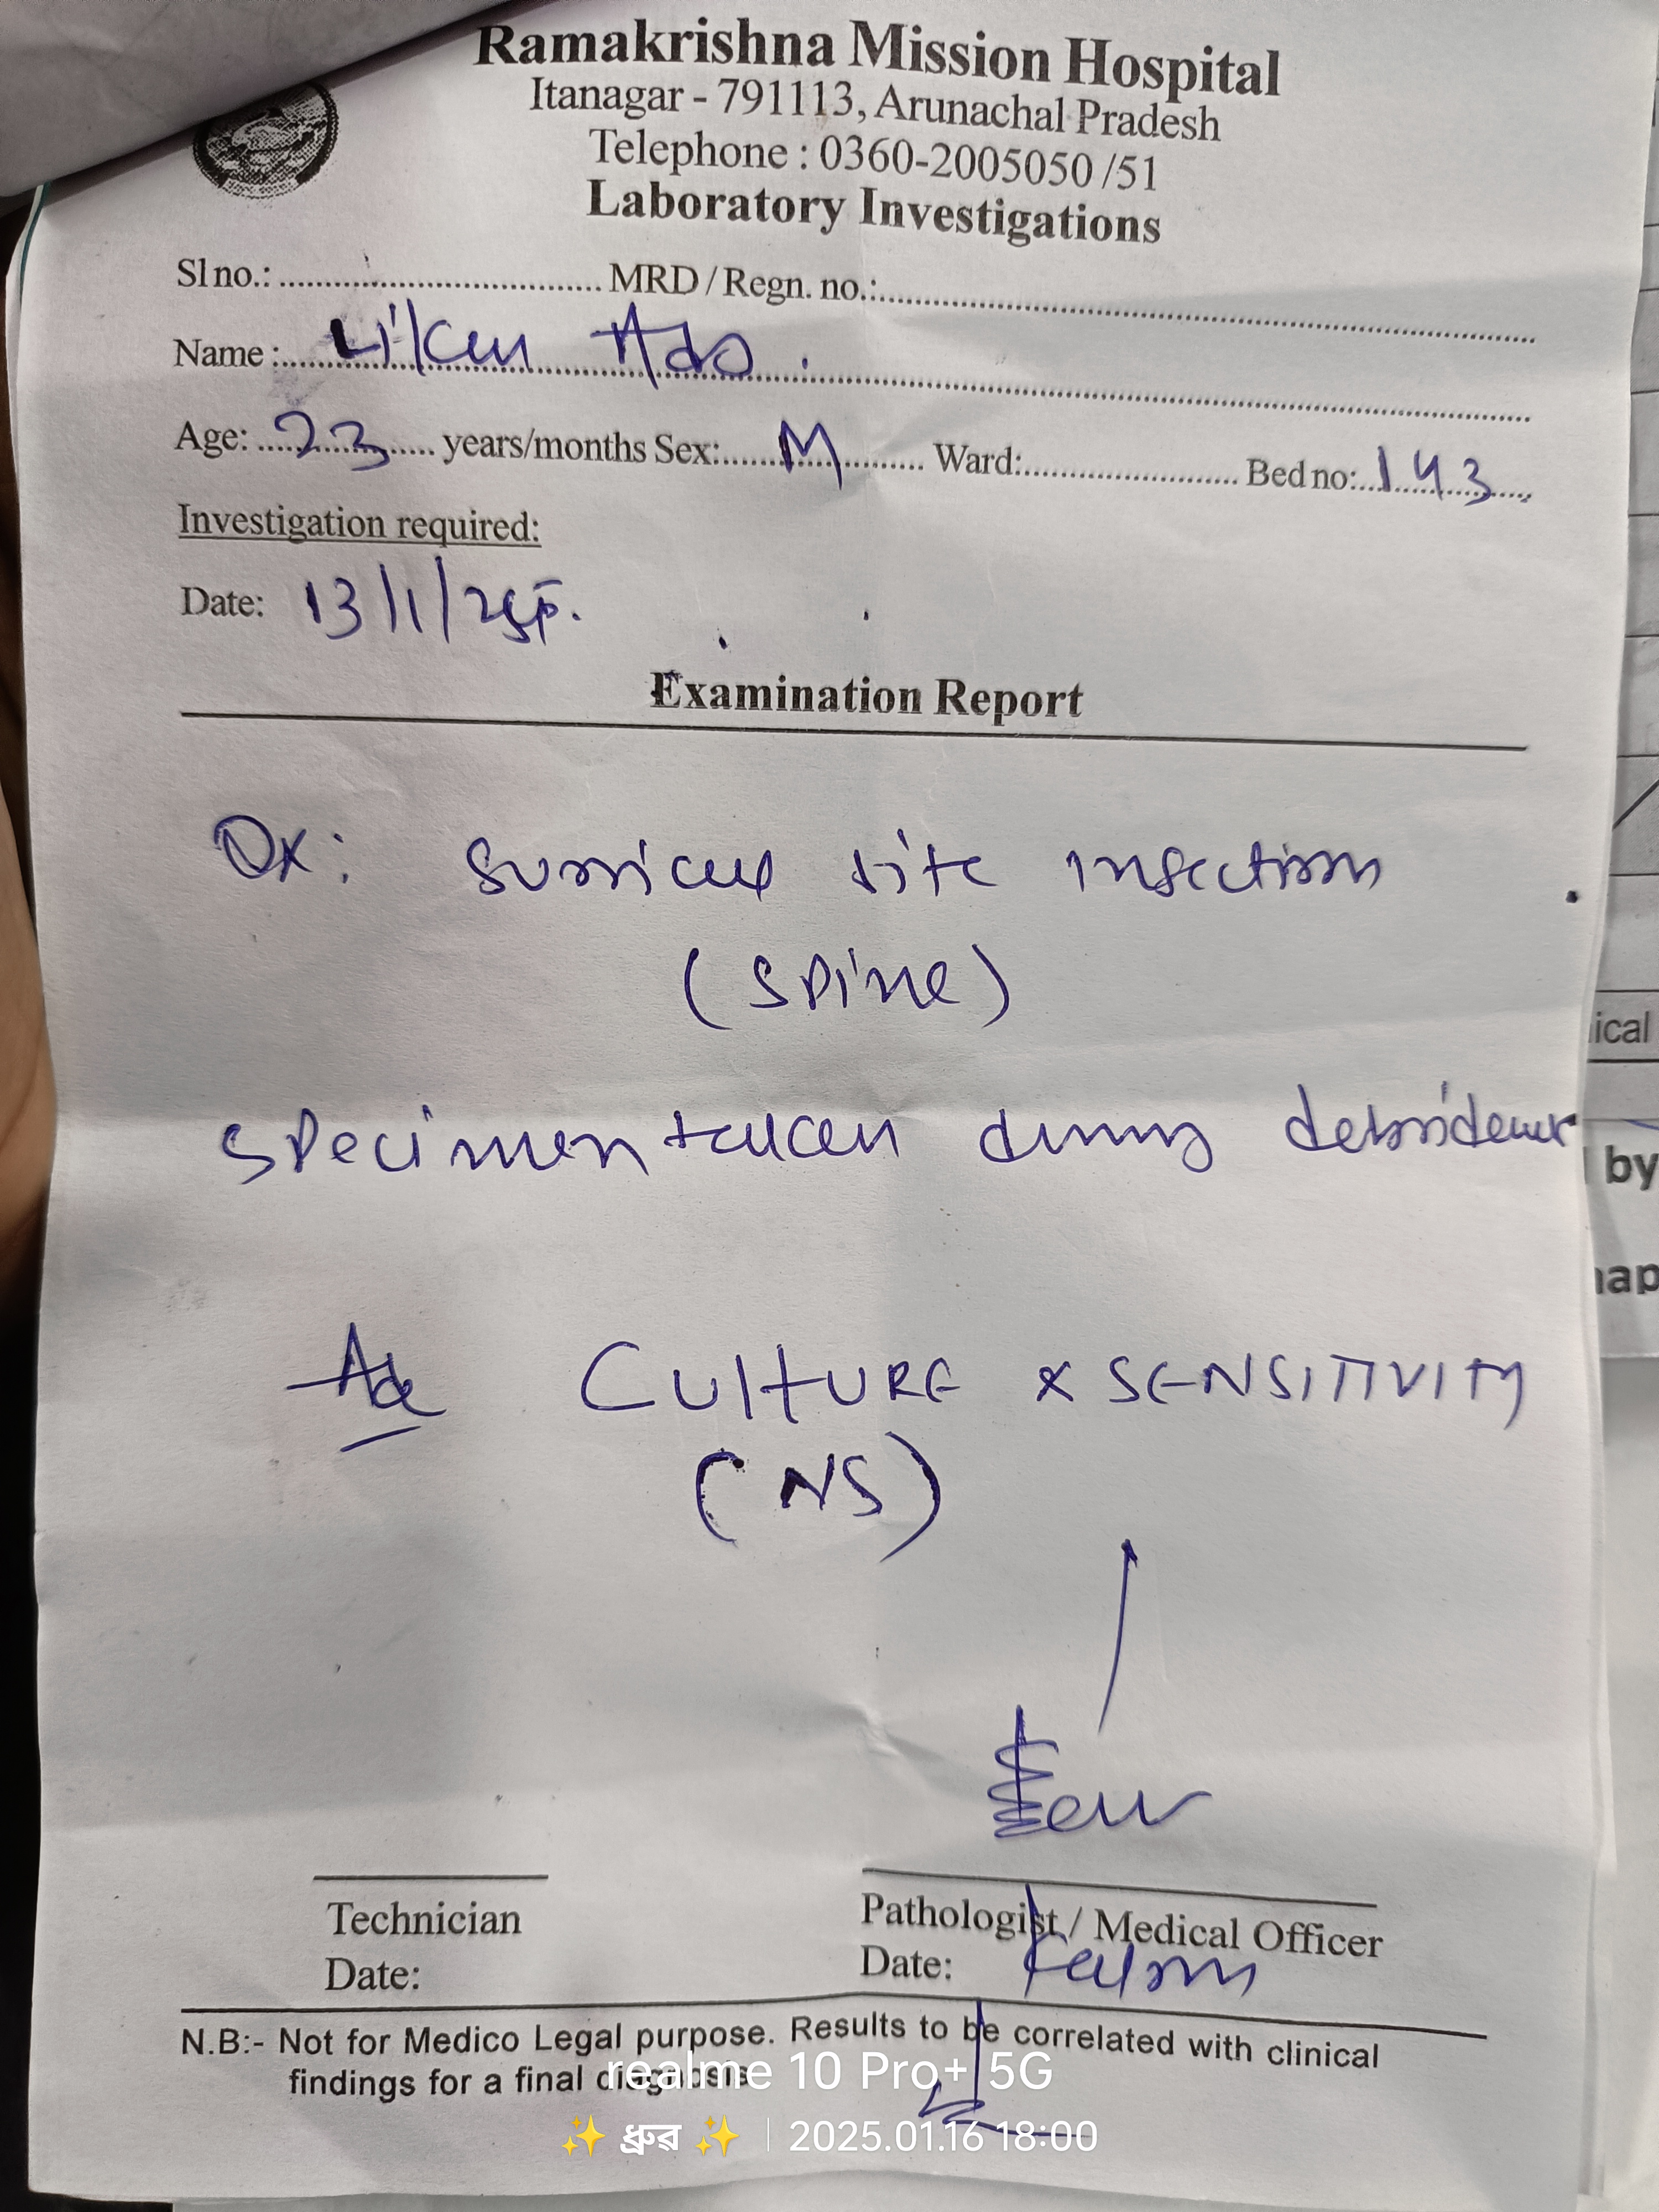 Ramakrishna Mission Hospital
Itanagar - 791113, Arunachal Pradesh
Telephone : 0360-2005050 /51
Laboratory Investigations
Sl no.: MRD / Regn. no.:
Name : Liken Ado
Age: 23 years/months Sex: M Ward: Bed no: 143
Investigation required:
Date: 13/1/25
Examination Report
Dx: Surgical site infection
(Spine)
specimen taken during debridement
Culture & SENSITIVITY
(NS)
Technician
Pathologist / Medical Officer
Date:
Date:
N.B:- Not for Medico Legal purpose. Results to be correlated with clinical
findings for a final diagnosis
ical
by
realme 10 Pro+ 5G
✨ ধ্ৰুৱ ✨ | 2025.01.16 18:00